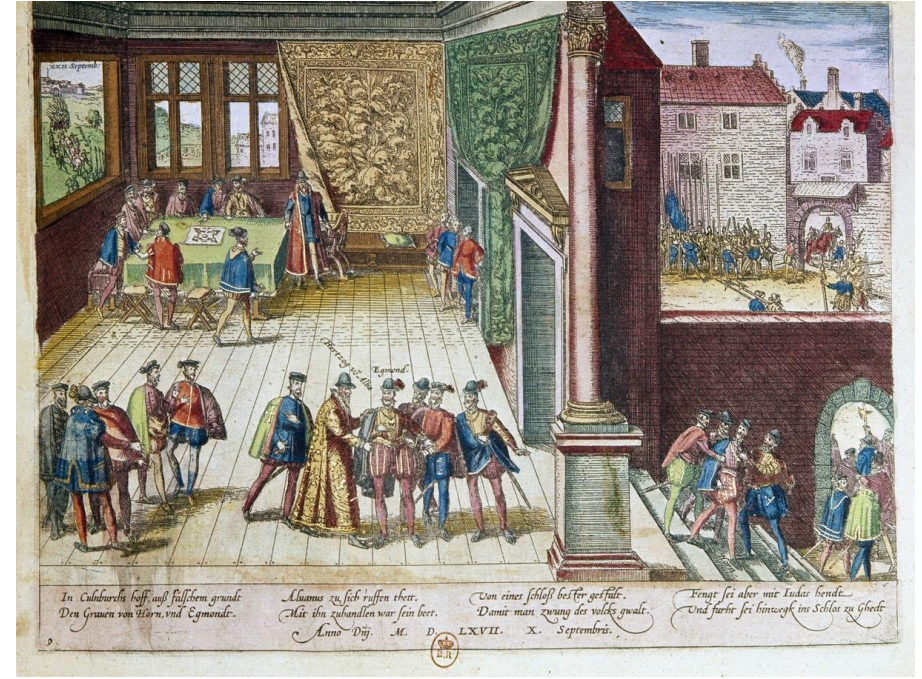 XXII Septemb:
Hertzog vō Alba
Egmond.
In Culnburchs hoff, auß falschem grundt
Den Grauen von Horn, vnd Egmondt.
Aluanus zu sich ruffen thett.
Mit ihn zuhandlen war sein beet.
Von eines schloß bester gestalt.
Damit man zwung des volcks gwalt.
Fengt sei aber mit Iudas hendt
Vnd furht sei hinwegk ins Schlos zu Ghedt
Anno Dñj. M. D. LXVII. X. Septembris.
9
B.R